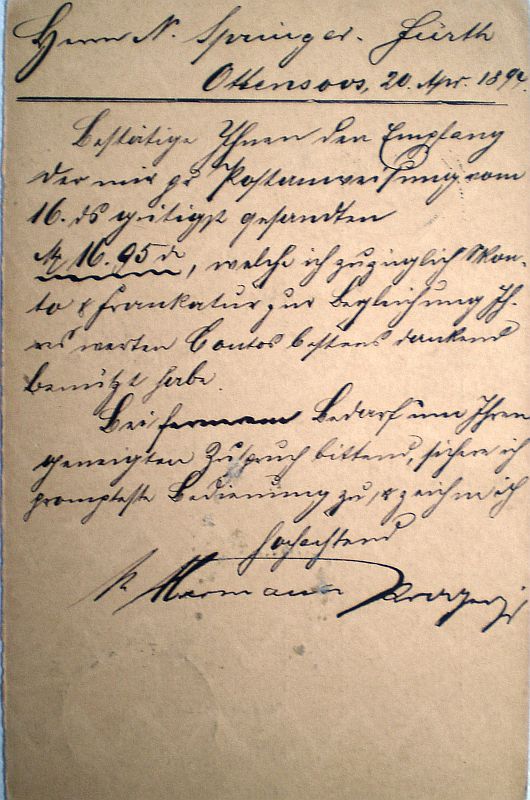 Herrn N. Springer. Fürth
Ottensoos, 20. Apr. 189
Bestätige Ihnen den Empfang
der mir pr Postanweisung vom
16. ds gütigst gesandten
M 16.95 d, welche ich zuzüglich Skon-
to & Frankatur zur Begleichung Ih-
res werten Contos bestens dankend
benützt habe.
Bei fernerem Bedarf um Ihren
geneigten Zuspruch bittend, sichere ich
prompteste Bedienung zu, & zeichne ich
hochachtend
Hermann